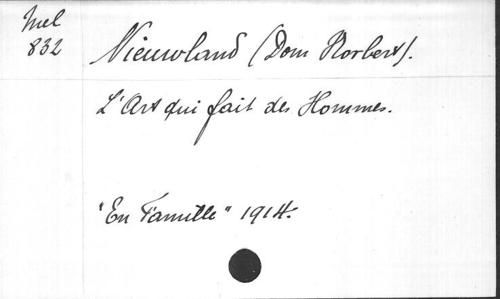 Mel
832
Nieuwland (Dom Norbert).
L'Art qui fait des Hommes.
"En Famille" 1914.